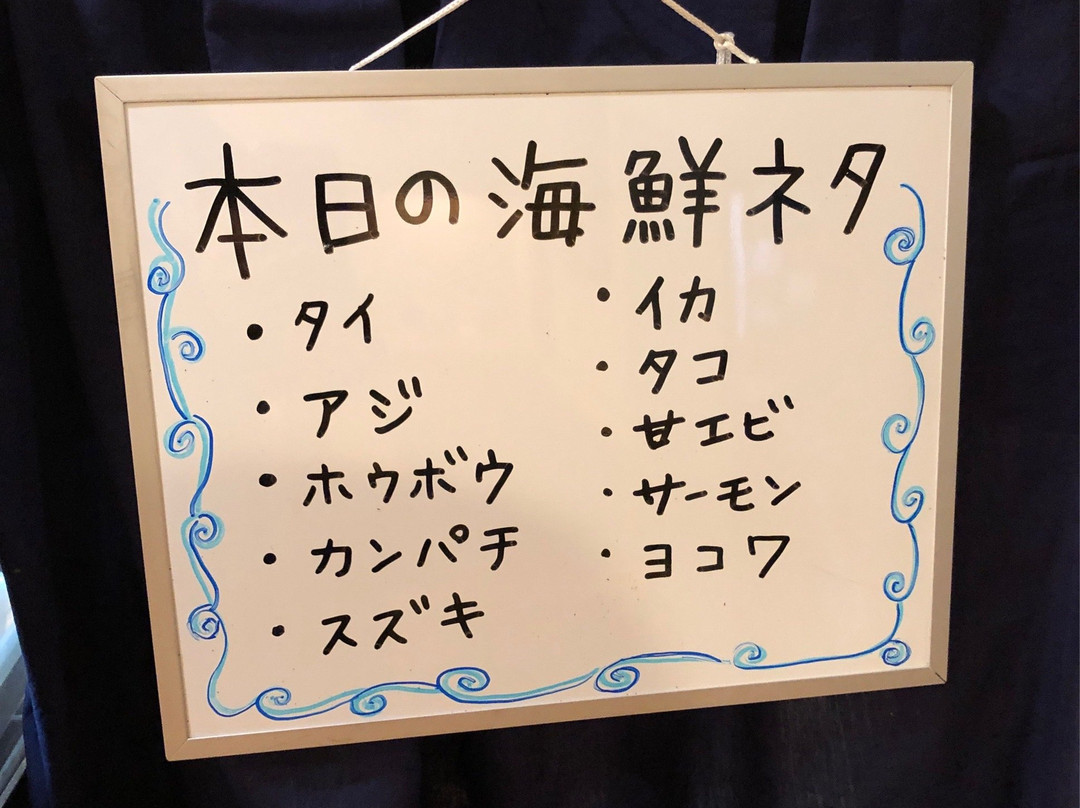 本日の海鮮ネタ
・タイ
・アジ
・ホウボウ
・カンパチ
・スズキ
・イカ
・タコ
・甘エビ
・サーモン
・ヨコワ